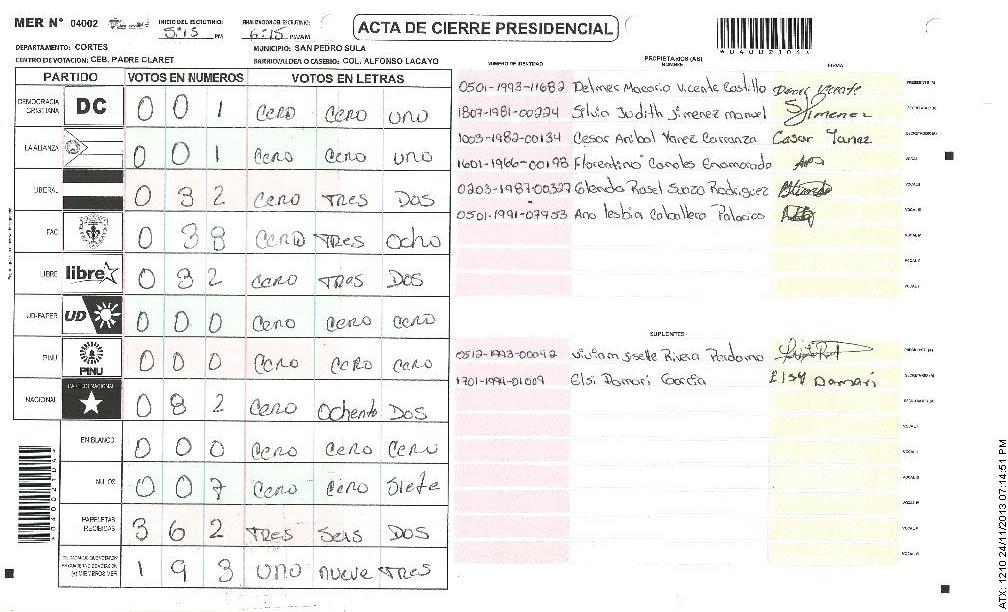 MER N° 04002 INICIO DEL ESCRUTINIO: 5:15 PM FINALIZACION DEL ESCRUTINIO: 6:15 PM/AM ACTA DE CIERRE PRESIDENCIAL
DEPARTAMENTO: CORTES MUNICIPIO: SAN PEDRO SULA
CENTRO DE VOTACION: CEB. PADRE CLARET BARRIO/ALDEA O CASERIO: COL. ALFONSO LACAYO
PARTIDO VOTOS EN NUMEROS VOTOS EN LETRAS
DEMOCRACIA CRISTIANA DC 0 0 1 CERO CERO UNO
LA ALIANZA 0 0 1 CERO CERO UNO
LIBERAL 0 3 2 CERO TRES DOS
FAC 0 38 CERO TRES Ocho
LIBRE libre 0 32 CERO TRES DOS
UD-FAPER UD 0 0 0 CERO CERO CERO
PINU PINU 0 0 0 CERO CERO CERO
NACIONAL PARTIDO NACIONAL 0 8 2 CERO Ochenta DOS
EN BLANCO 0 0 0 CERO CERO CERO
NULOS 0 0 7 CERO CERO Siete
PAPELETAS RECIBIDAS 3 6 2 TRES Seis DOS
1 9 3 UNO nueve TRES
NUMERO DE IDENTIDAD PROPIETARIOS (AS) NOMBRE FIRMA
0501-1993-11682 Delmer Macario Vicente Castillo PRESIDENTE (A)
1807-1981-00224 Silvia Judith Jimenez manuel Jimenez SECRETARIO (A)
1003-1982-00134 Cesar Anibal Yanez Carranza Cesar Yanez
1601-1966-00198 Florentino Canales Enamorado VOCAL I
0203-1987-00327 Glenda Rosel Suazo Rodriguez VOCAL II
0501-1991-07953 Ana lesbia Caballero Palacios VOCAL III
VOCAL IV
VOCAL V
SUPLENTES
0512-1993-00042 Viviam Jiselle Rivera Perdomo PRESIDENTE (A)
1701-1994-01009 Elsi Damari Garcia Elsy Damari SECRETARIO (A)
ATX: 1210 24/11/2013 07:14:51 PM